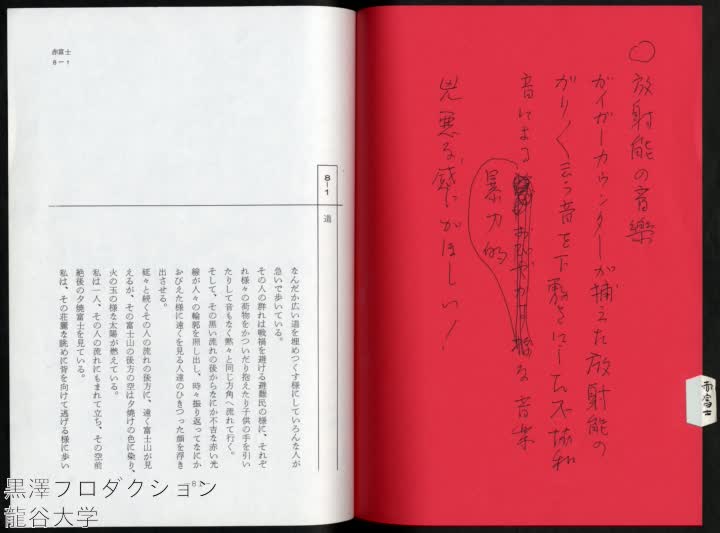 ○放射能の音楽
ガイガーカウンターが捕えた放射能の
がりがり云う音を下敷きにした不協和
音による
暴力的
な音楽
兇悪な感じがほしい!
赤富士
赤富士
8－1
8－1
道
なんだか広い道を埋めつくす様にしていろんな人が
急いで歩いている。
その人の群れは戦禍を避ける避難民の様に、それぞ
れ様々の荷物をかついだり抱えたり子供の手を引い
たりして音もなく黙々と同じ方角へ流れて行く。
そして、その黒い流れの後からなにか不吉な赤い光
線が人々の輪郭を照し出し、時々振り返ってなにか
おびえた様に遠くを見る人達のひきつった顔を浮き
出させる。
延々と続くその人の流れの後方に、遠く富士山が見
えるが、その富士山の後方の空は夕焼けの色に染り、
火の玉の様な太陽が燃えている。
私は一人、その人の流れにもまれて立ち、その空前
絶後の夕焼富士を見ている。
私は、その荘麗な眺めに背を向けて逃げる様に歩い
黒澤プロダクション
龍谷大学